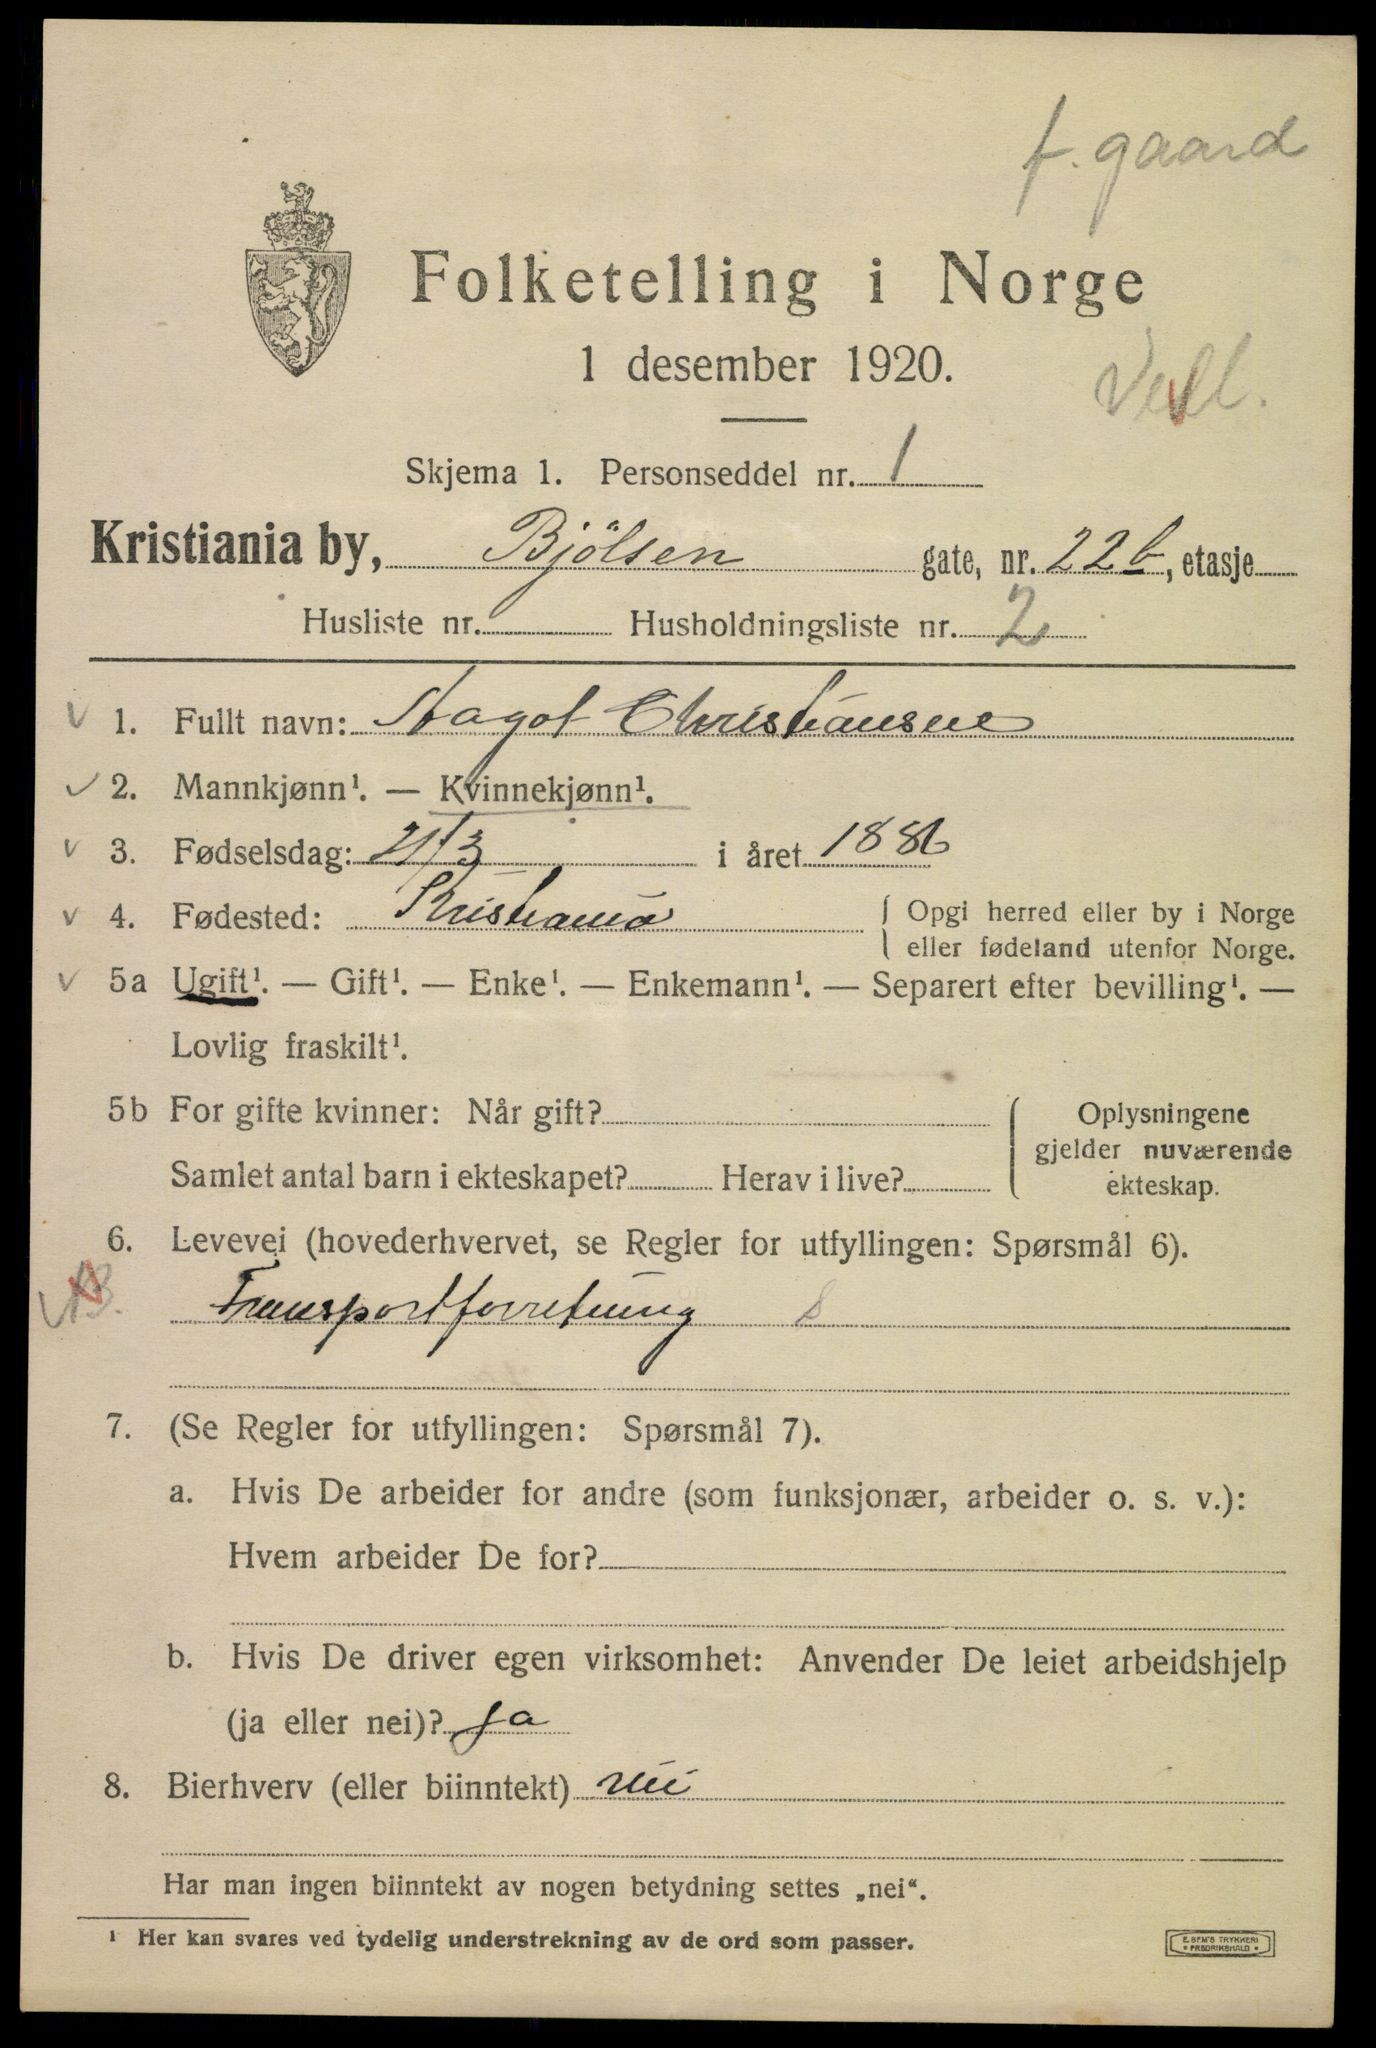 f. gaard
Folketelling i Norge
1 desember 1920.
Skjema 1. Personseddel nr. 1
Kristiania by, Bjölsen gate, nr. 22b, etasje
Husliste nr. Husholdningsliste nr. 2
1. Fullt navn: Aagot Christiansen
2. Mannkjønn¹. — Kvinnekjønn¹.
3. Fødselsdag: 21/3 i året 1886
4. Fødested: Kristiania { Opgi herred eller by i Norge
eller fødeland utenfor Norge.
5a Ugift¹. — Gift¹. — Enke¹. — Enkemann¹. — Separert efter bevilling¹. —
Lovlig fraskilt¹.
5b For gifte kvinner: Når gift? { Oplysningene
gjelder nuværende
Samlet antal barn i ekteskapet? Herav i live?
ekteskap.
6. Levevei (hovederhvervet, se Regler for utfyllingen: Spørsmål 6).
Transportforretning
7. (Se Regler for utfyllingen: Spørsmål 7).
a. Hvis De arbeider for andre (som funksjonær, arbeider o. s. v.):
Hvem arbeider De for?
b. Hvis De driver egen virksomhet: Anvender De leiet arbeidshjelp
(ja eller nei)? ja
8. Bierhverv (eller biinntekt) nei
Har man ingen biinntekt av nogen betydning settes „nei“.
¹ Her kan svares ved tydelig understrekning av de ord som passer.
E. SEM'S TRYKKERI
FREDRIKSHALD